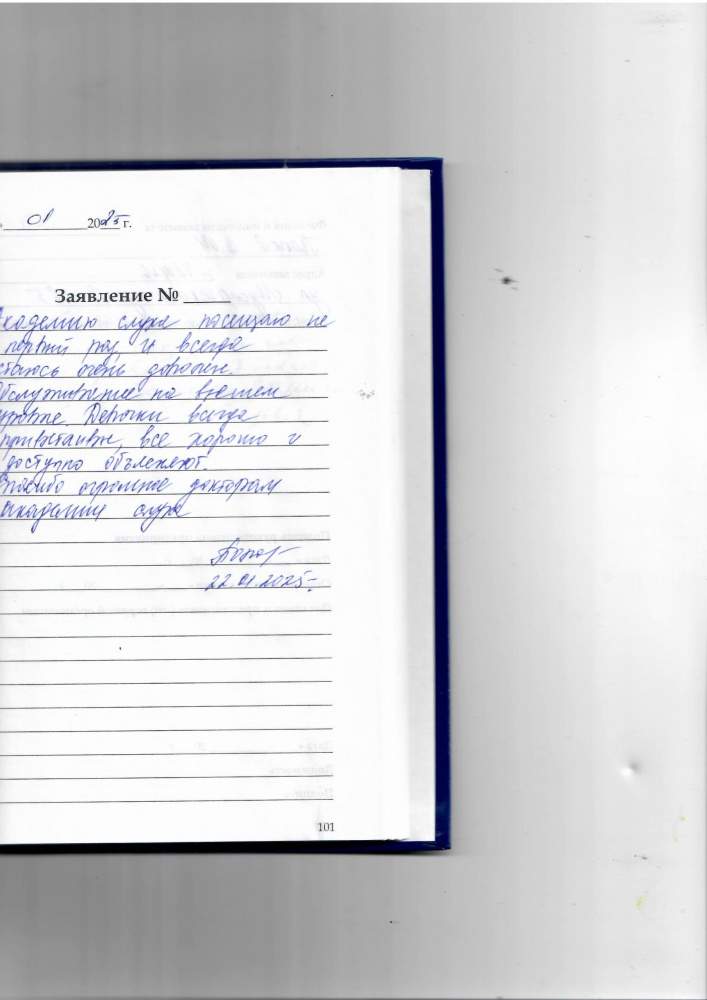 01 2025 г.
Заявление №
Академию слуха посещаю не
первый раз, и всегда
остаюсь очень доволен.
Обслуживание на высшем
уровне. Девочки всегда
приветливы, все хорошо и
доступно объясняют.
Спасибо огромное докторам
академии слуха
22.01.2025г.
101